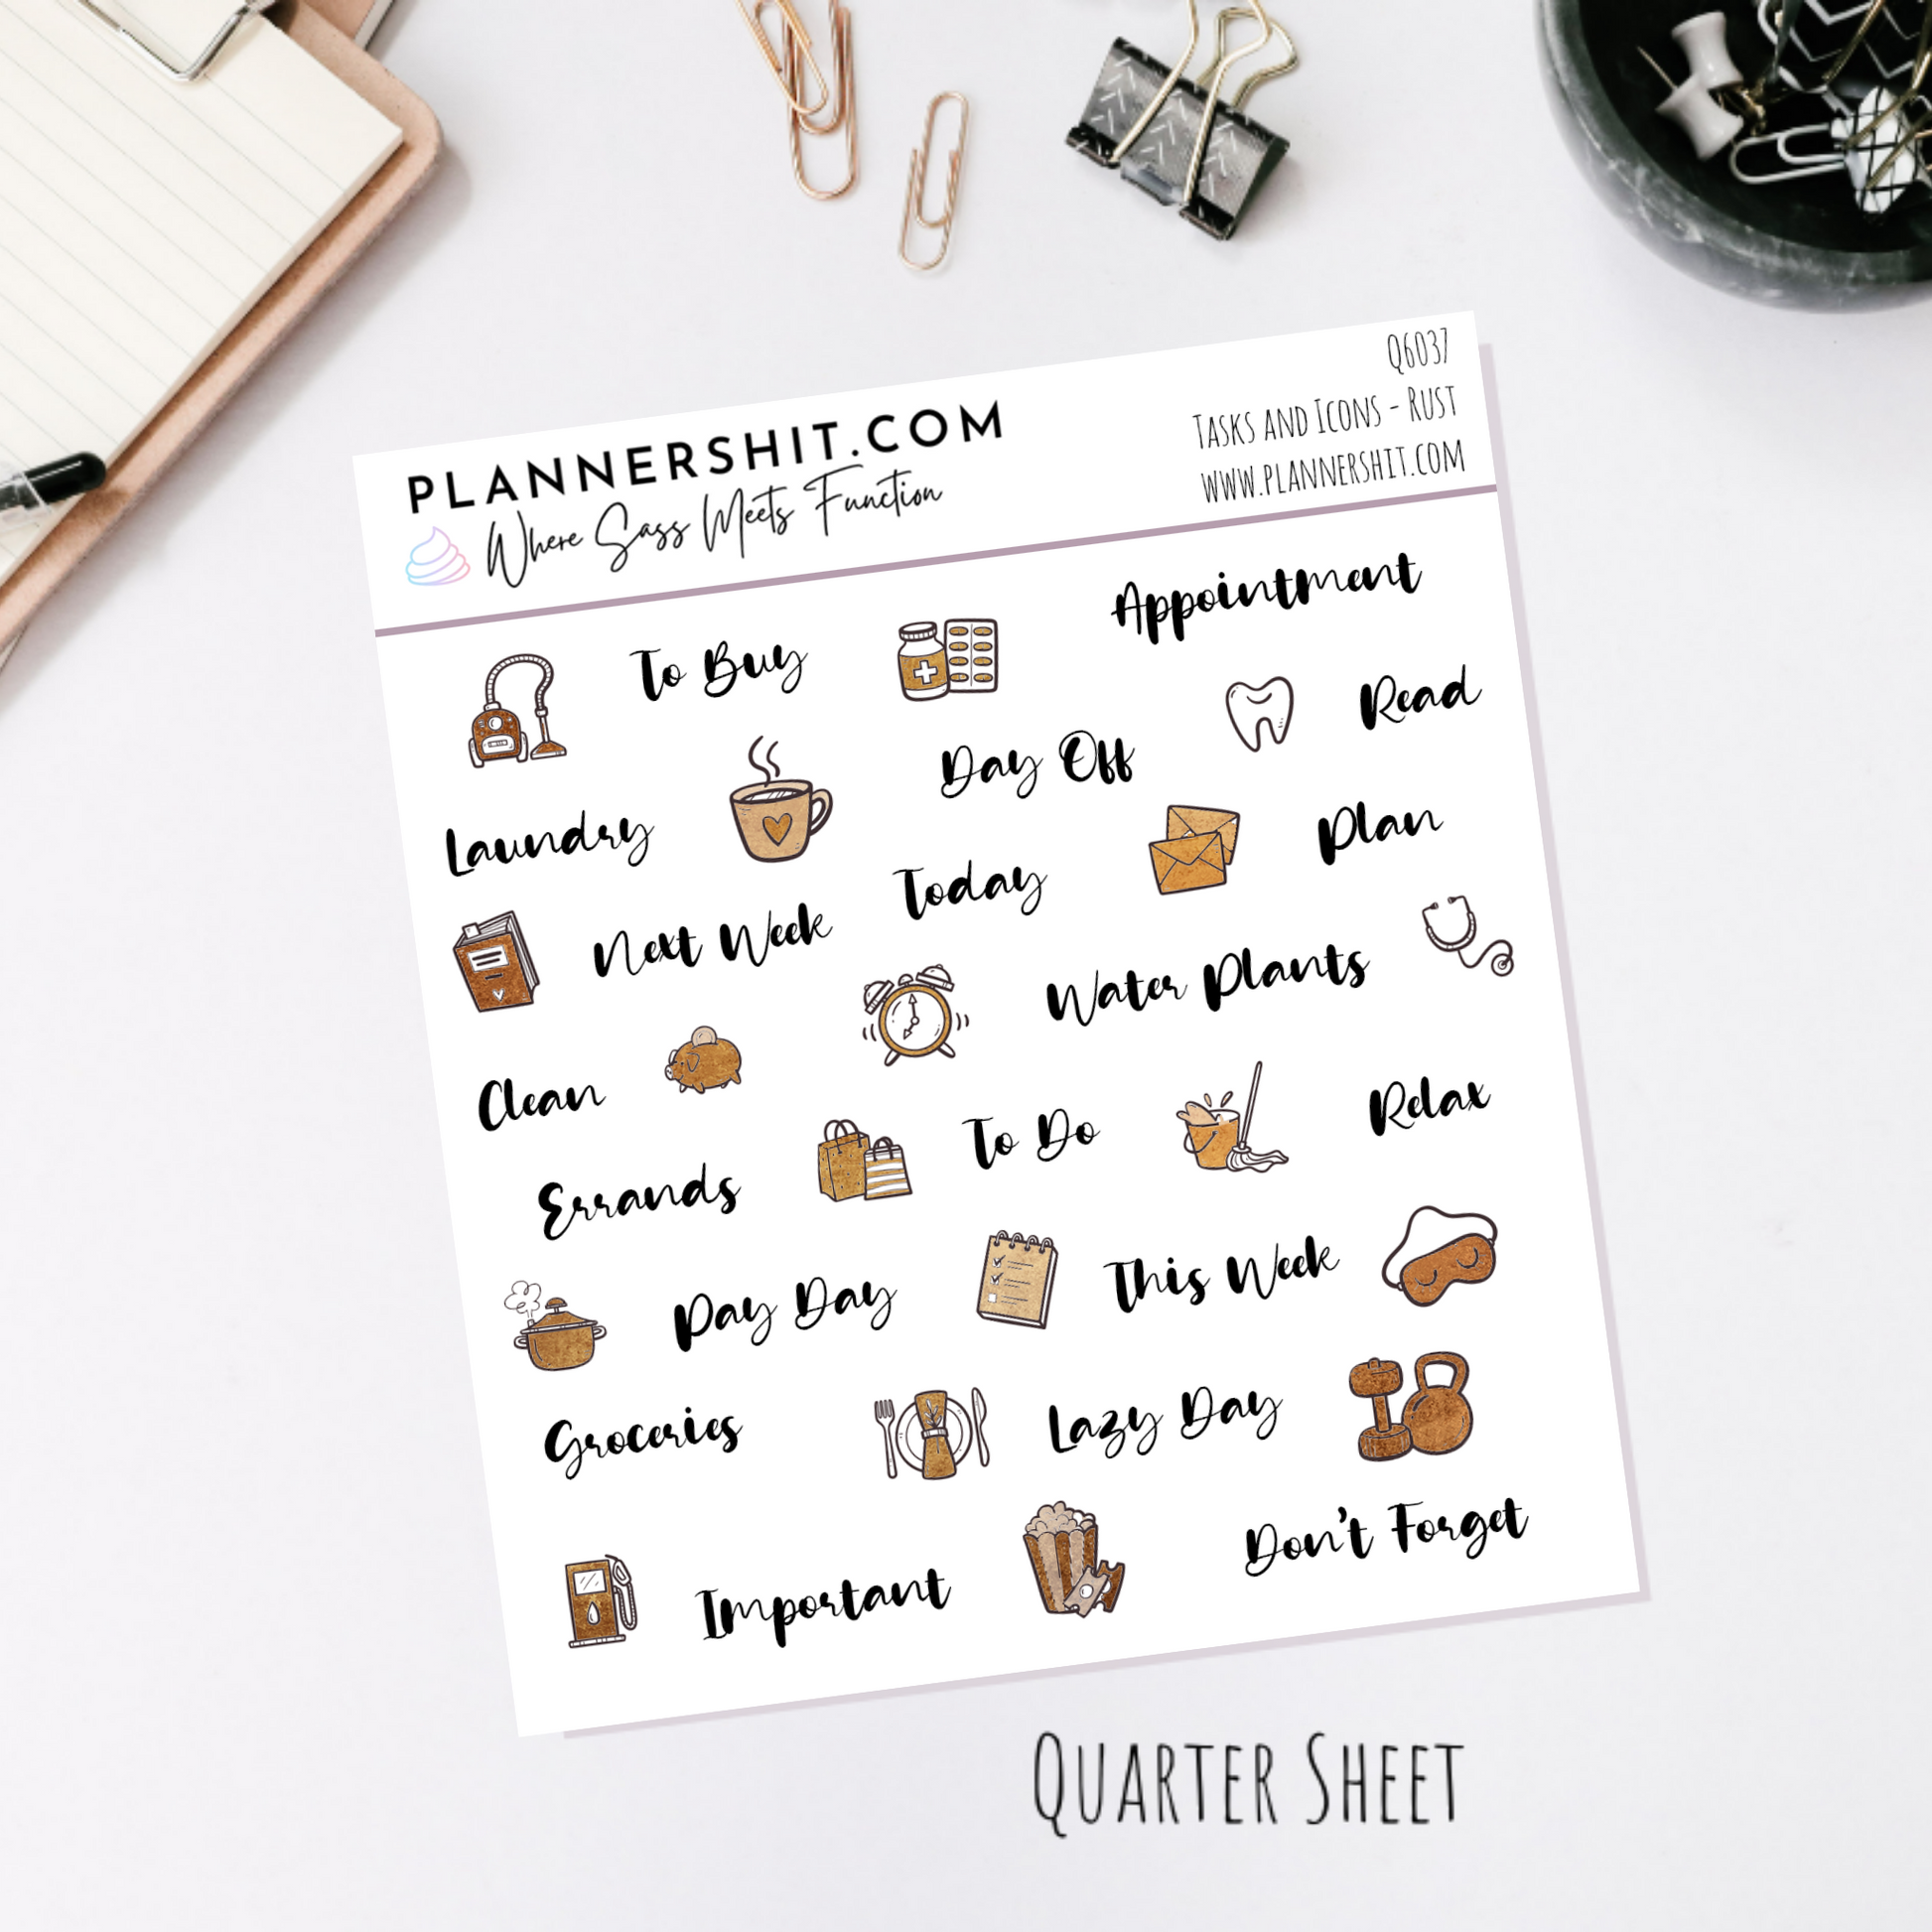 PLANNERSHIT.COM
Where Sass Meets Function
Q6037
Tasks and Icons - Rust
www.plannershit.com
Appointment
To Buy
Read
Day Off
Laundry
Plan
Today
Next Week
Water Plants
Clean
Relax
To Do
Errands
This Week
Pay Day
Lazy Day
Groceries
Don't Forget
Important
Quarter Sheet